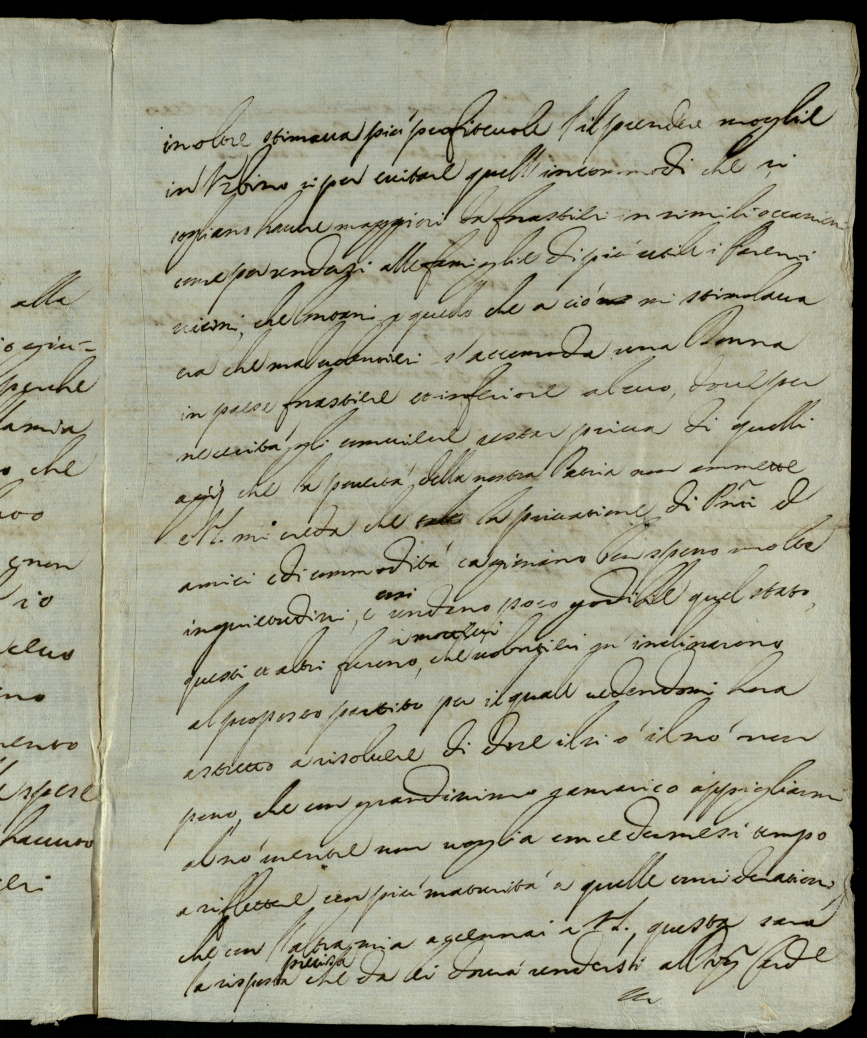 alla
perche
che
non
io
mento
spese
havuto
inoltre stimava più profittevole il prendere moglie
in Urbino sì per evitare quell'incommodi che si
sogliono havere maggiori da forastieri in simili occasioni
come per rendersi alle famiglie di più utile i Parenti
vicini, che lontani, e quello che a ciò mi stimolava
era che mal volentieri s'accomoda una Donna
in paese forastiere et inferiore al suo, dove per
necessità gli conviene restar priva di quelli
agij che la povertà della nostra Patria non ammette
e V.S. mi creda che la privatione di Pñti e d
amici e di commodità cagionano ben spesso molte
inquietudini, e così rendono poco godibile quel stato,
questi et altri furono i motivi, che volentieri m'inclinarono
al proposto partito per il quale vedendomi hora
astretto a risolvere di dire il sì ò il nò non
posso, che con grandissimo ramarico appigliarmi
al nò mentre non voglia concedermesi tempo
a riflettere con più maturità a quelle considerationi,
che con l'altra mia accennai a V.S., questa sara
la risposta precisa che da lei dovrà rendersi al Sig Card